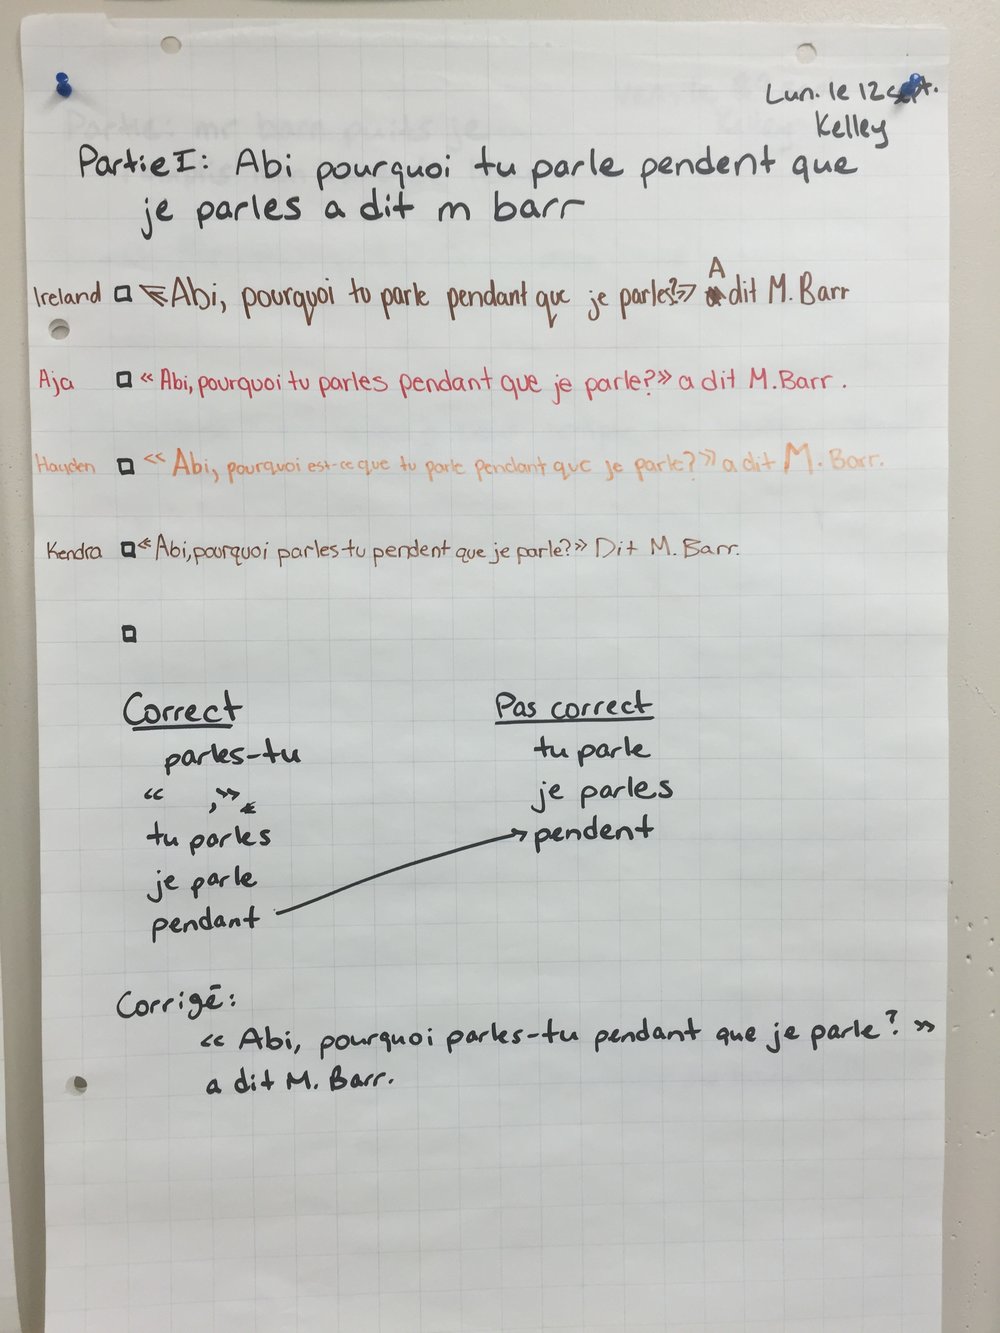 Lun. le 12 sept.
Kelley
Partie I: Abi pourquoi tu parle pendent que
je parles a dit m barr
Ireland « Abi, pourquoi tu parle pendant que je parles?» A dit M. Barr
Aja « Abi, pourquoi tu parles pendant que je parle?» a dit M. Barr.
Hayden « Abi, pourquoi est-ce que tu parle pendant que je parle?» a dit M. Barr.
Kendra « Abi, pourquoi parles-tu pendent que je parle?» Dit M. Barr.
Correct
parles-tu
« ,»
tu parles
je parle
pendant
Pas correct
tu parle
je parles
pendent
Corrigé:
« Abi, pourquoi parles-tu pendant que je parle? »
a dit M. Barr.